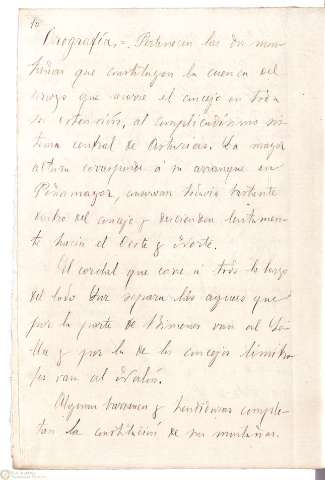 10
Orografía. = Pertenecen las dos mon-
tañas que constituyen la cuenca del
arroyo que recorre el concejo en toda
su extensión, al complicadísimo sis-
tema central de Asturias. La mayor
altura corresponde á su arranque en
Peñamayor, conservan todavía bastante
dentro del concejo y descienden lentamen-
te hacia el Oeste y Norte.
El cordal que corre á todo lo largo
del lado Sur separa las aguas que
por la parte de Bimenes van al
y por la de los concejos limitro-
fes van al Nalón.
Algunos barrancos y hendiduras comple-
tan la constitución de sus montañas.